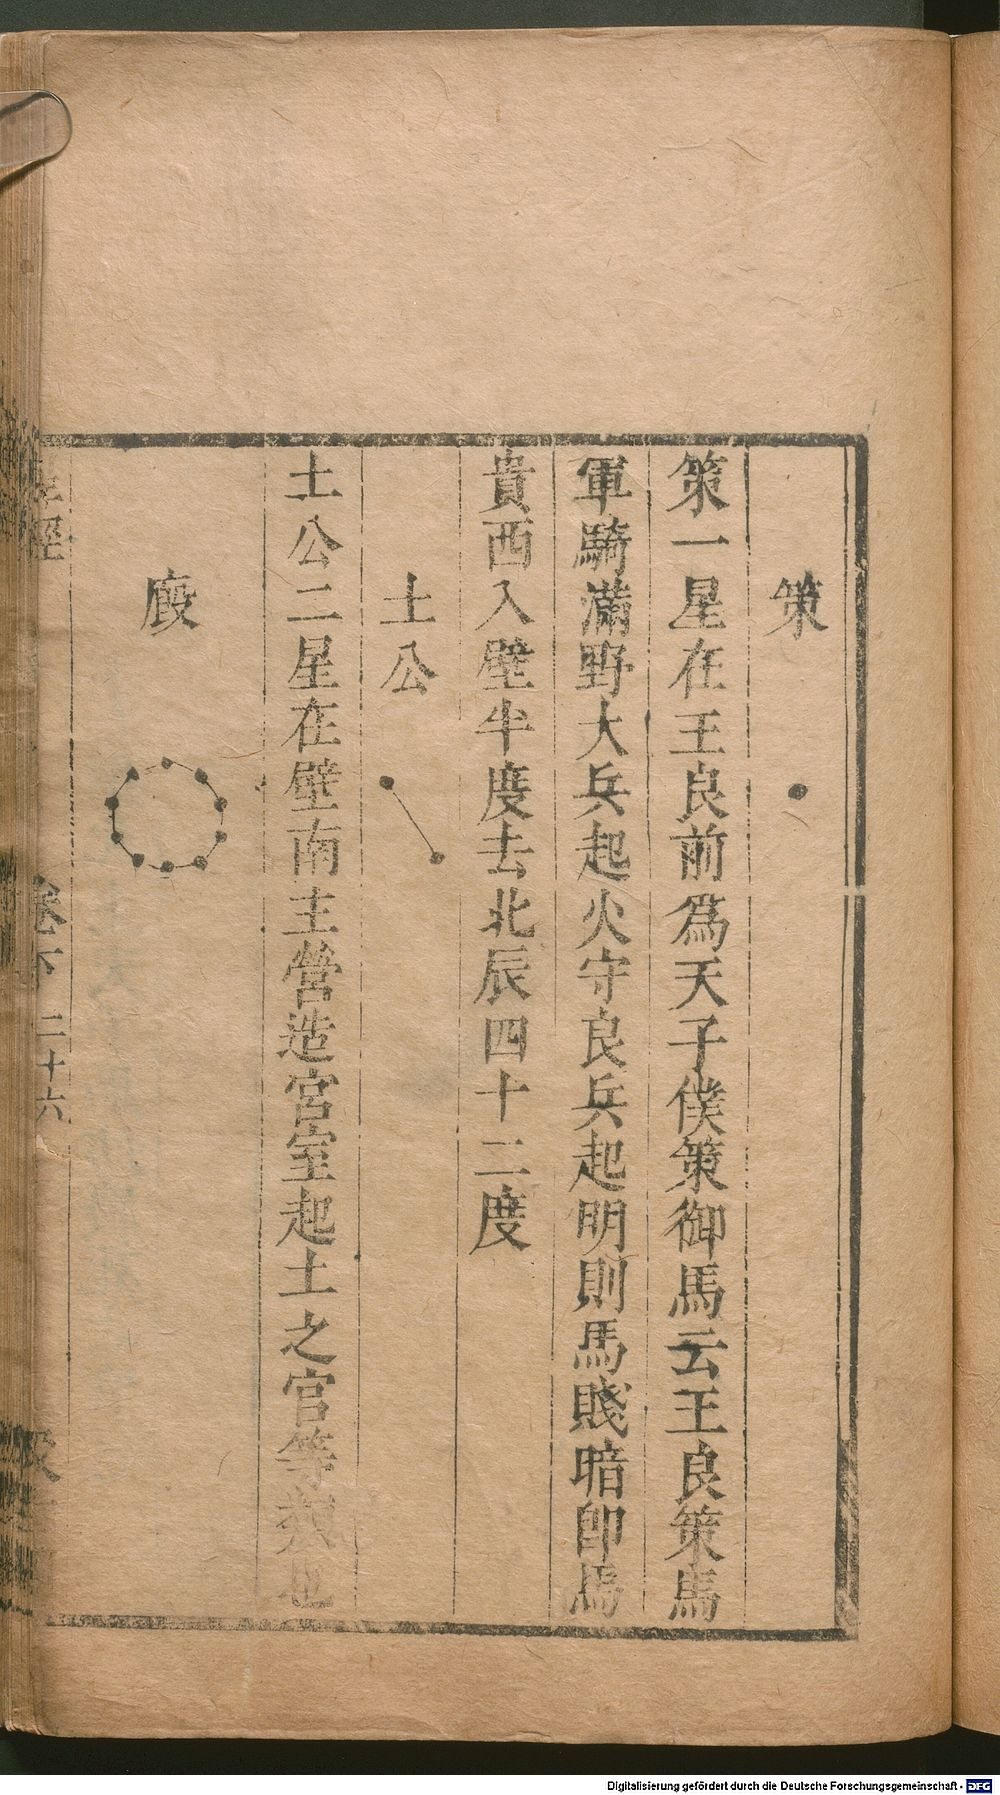 策
策一星在王良前為天子僕策御馬云王良策馬
軍騎滿野大兵起火守良兵起明則馬賤暗卽馬
貴西入壁半度去北辰四十二度
土公
土公二星在壁南主營造宮室起土之官等
廄
星經
卷下
二十六
Digitalisierung gefördert durch die Deutsche Forschungsgemeinschaft - DFG